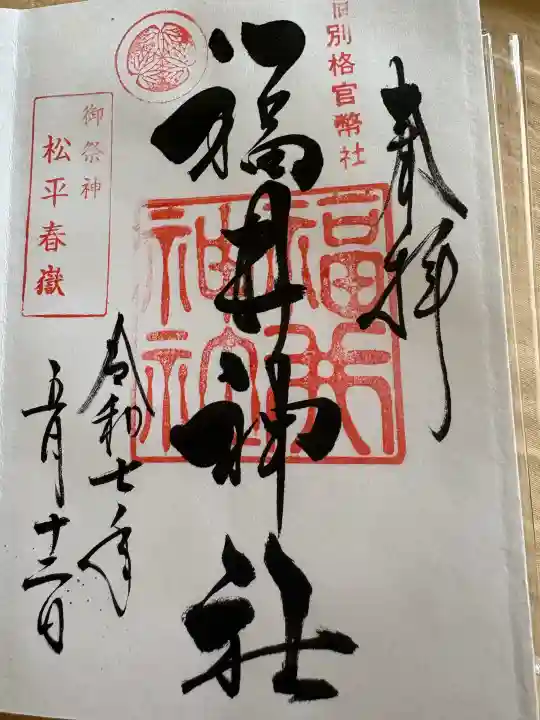 奉拝
旧別格官幣社
福井神社
福井神社
御祭神
松平春嶽
令和七年
五月十三日